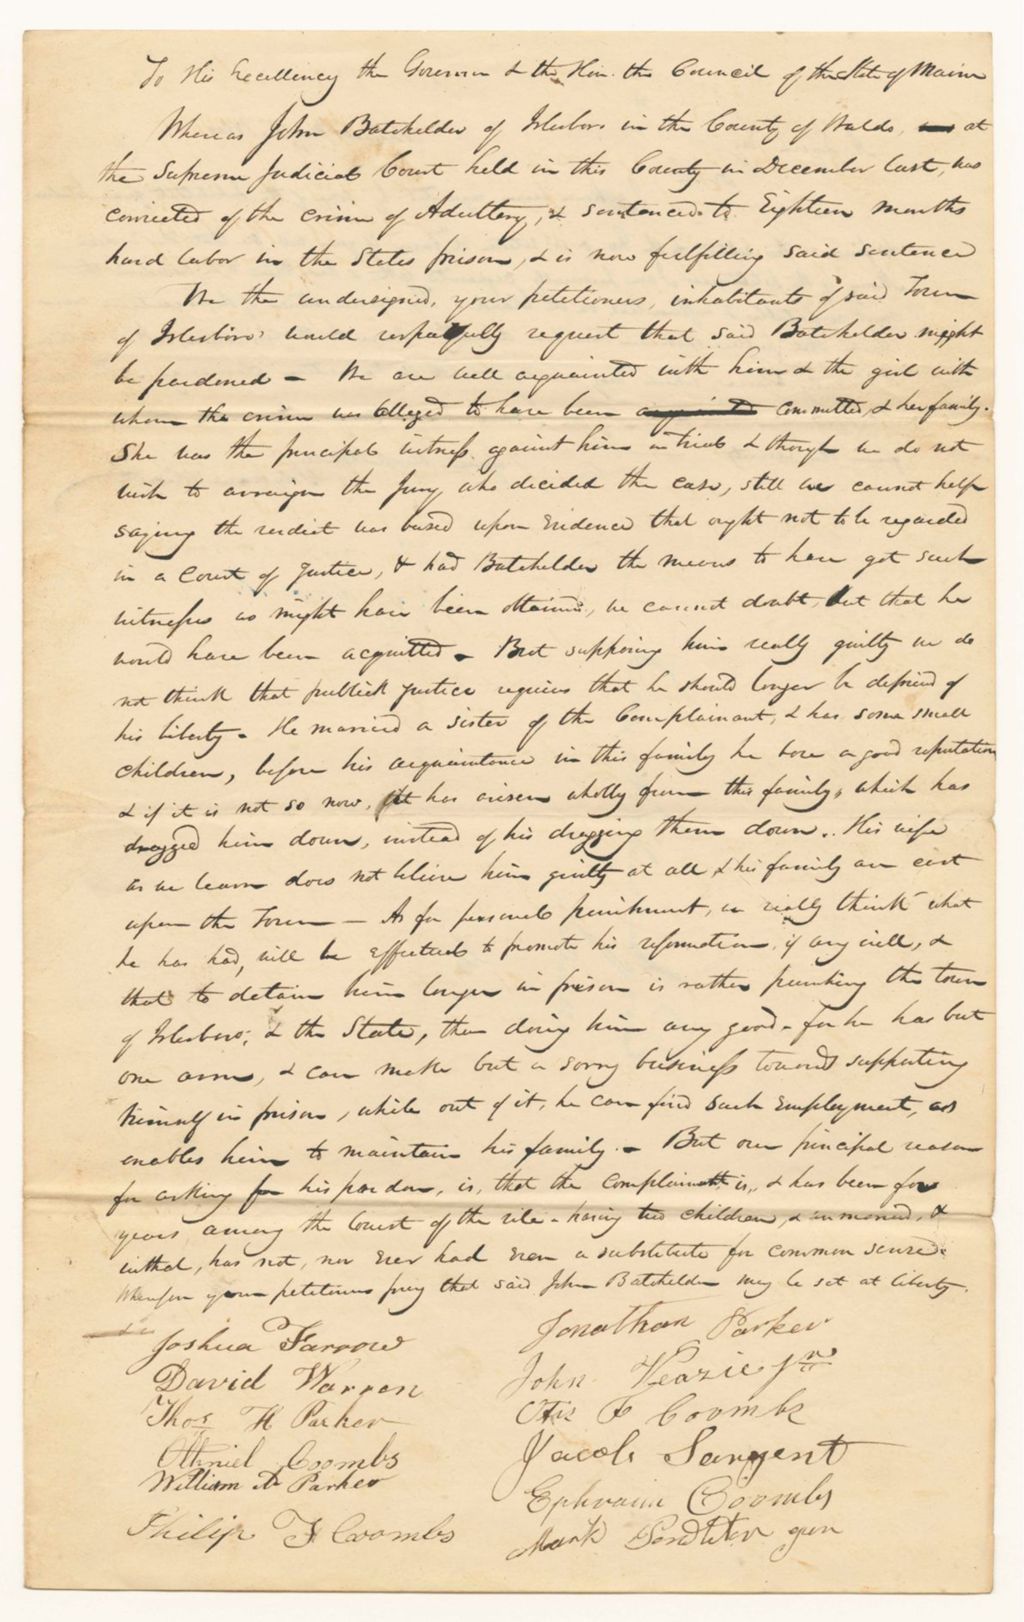 To His Excellency the Governor & the Hon. the Council of the State of Maine
Whereas John Batchelder of Islesboro in the County of Waldo, at
the Supreme Judicial Court held in this County in December last, was
convicted of the crime of Adultery, & sentenced to Eighteen months
hard labor in the States prison, & is now fulfilling said sentence
We the undersigned, your petitioners, inhabitants of said Town
of Islesboro' would respectfully request that said Batchelder might
be pardoned – We are well acquainted with him & the girl with
whom the crime was alleged to have been committed, & her family.
She was the principal witness against him on trial & though we do not
wish to arraign the Jury who decided the case, still we cannot help
saying the verdict was based upon evidence that ought not to be regarded
in a Court of Justice, & had Batchelder the means to have got such
witnesses as might have been obtained, we cannot doubt, but that he
would have been acquitted – But supposing him really guilty we do
not think that publick justice requires that he should longer be deprived of
his liberty – He married a sister of the Complainant, & has some small
children, before his acquaintance in this family he bore a good reputation
& if it is not so now, it has arisen wholly from this family, which has
dragged him down, instead of his dragging them down. His wife
as we learn does not believe him guilty at all, & his family are cast
upon the Town – As for personal punishment, we really think what
he has had, will be effectual to promote his reformation, if any will, &
that to detain him longer in prison is rather punishing the town
of Islesboro, & the State, than doing him any good – for he has but
one arm, & can make but a sorry business towards supporting
himself in prison, while out of it, he can find such employment, as
enables him to maintain his family. – But our principal reason
for asking for his pardon, is, that the complainant is, & has been for
years among the lowest of the vile – having two children, & unmarried, &
withal, has not, nor ever had even a substitute for common sense.
Wherefore your petitioners pray that said John Batchelder may be set at liberty.
Joshua Farrow
David Warren
Thos H Parker
Othniel Coombs
William A Parker
Philip F Coombs
Jonathan Parker
John Veazie Jnr
Otis F Coombs
Jacob Sargent
Ephraim Coombs
Mark Pendleton jun